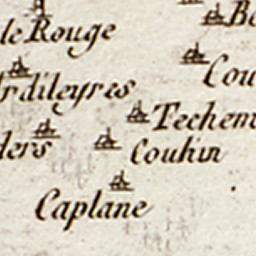 le Rouge
Be
Cou
rdileyres
Techem
ders
Couhin
Caplane